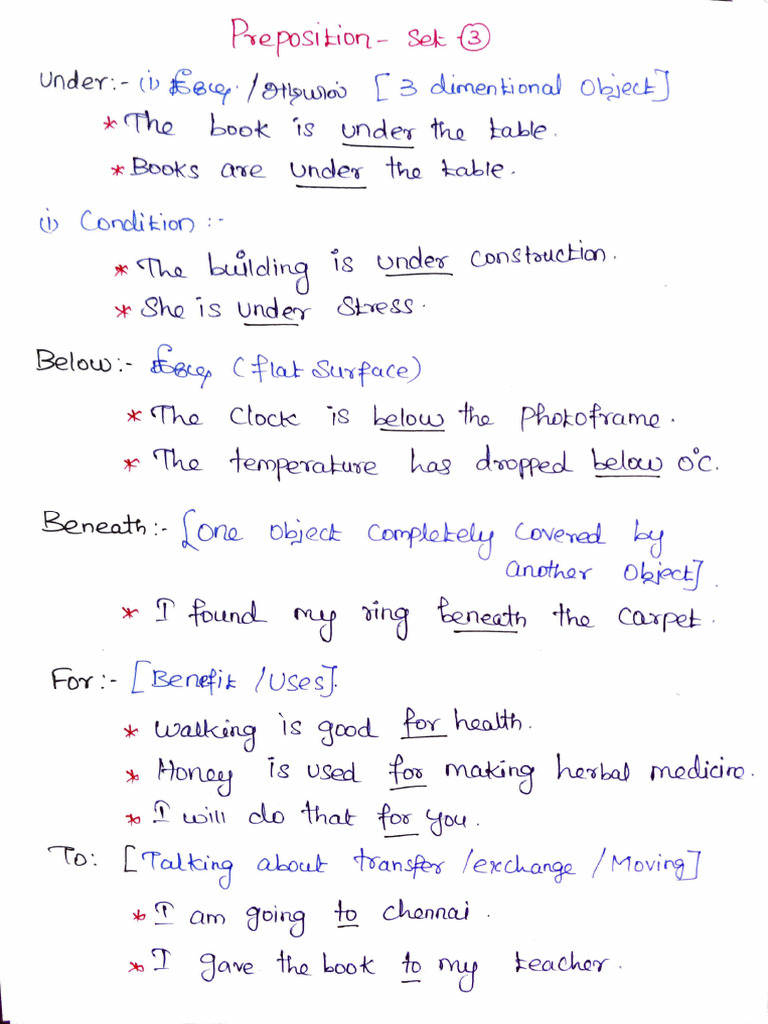 Preposition - Set - ③
Under:- (i) கீழே / அடியில் [3 dimentional Object]
* The book is under the table.
* Books are under the table.
(i) Condition :-
* The building is under construction.
* She is under Stress.
Below:- கீழே (flat Surface)
* The Clock is below the Photoframe.
* The temperature has dropped below 0°C.
Beneath:- [One object Completely Covered by
another Object].
* I found my ring beneath the Carpet.
For:- [Benefit / Uses].
* Walking is good for health.
* Honey is used for making herbal medicine.
* I will do that for you.
To: [Talking about transfer / exchange / Moving]
* I am going to chennai.
* I gave the book to my teacher.